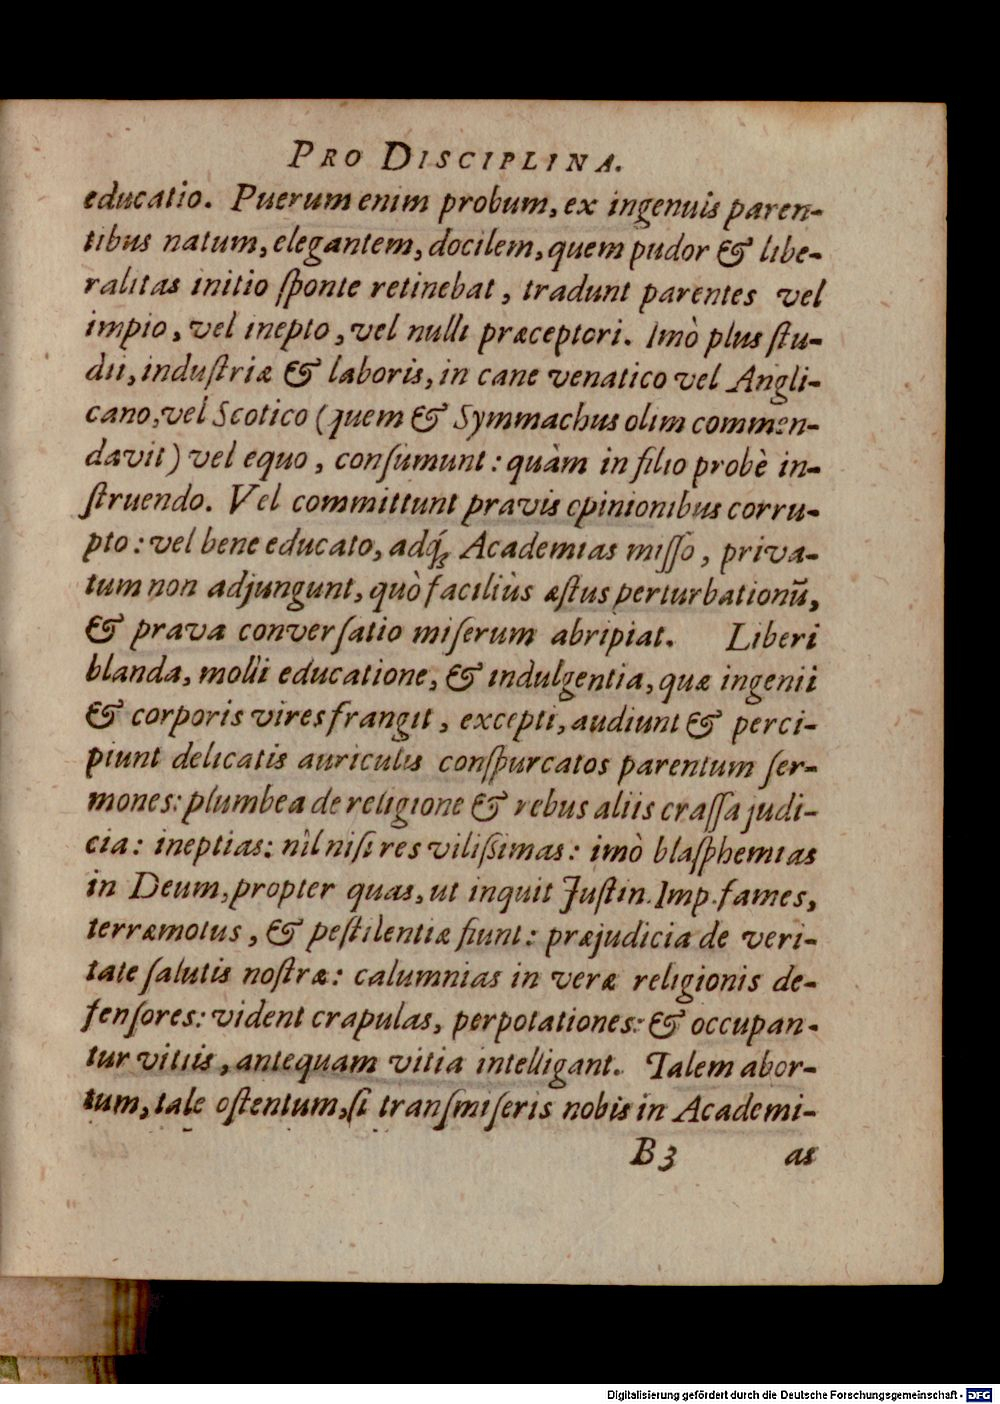 PRO DISCIPLINA.
educatio. Puerum enim probum, ex ingenuis paren-
tibus natum, elegantem, docilem, quem pudor & libe-
ralitas initio ſponte retinebat, tradunt parentes vel
impio, vel inepto, vel nulli præceptori. Imò plus ſtu-
dii, induſtriæ & laboris, in cane venatico vel Angli-
cano, vel Scotico (quem & Symmachus olim commen-
davit) vel equo, conſumunt: quàm in filio probè in-
ſtruendo. Vel committunt pravis opinionibus corru-
pto: vel bene educato, adq́ꝫ Academias miſſo, priva-
tum non adjungunt, quò faciliùs æſtus perturbationũ,
& prava converſatio miſerum abripiat. Liberi
blanda, molli educatione, & indulgentia, quæ ingenii
& corporis vires frangit, excepti, audiunt & perci-
piunt delicatis auriculis conſpurcatos parentum ſer-
mones: plumbea de religione & rebus aliis craſſa judi-
cia: ineptias: nil niſi res viliſſimas: imò blaſphemias
in Deum, propter quas, ut inquit Juſtin. Imp. fames,
terræmotus, & peſtilentiæ fiunt: præjudicia de veri-
tate ſalutis noſtræ: calumnias in veræ religionis de-
fenſores: vident crapulas, perpotationes: & occupan-
tur vitiis, antequam vitia intelligant. Talem abor-
tum, tale oſtentum, ſi tranſmiſeris nobis in Academi-
B3 as
Digitalisierung gefördert durch die Deutsche Forschungsgemeinschaft - DFG